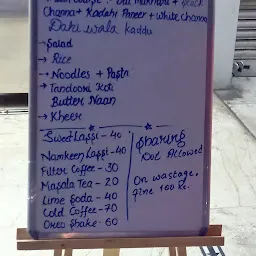 Dal Makhani + Black
Channa + Kadahi Paneer + White Channa
Dahi wala Kaddu
→ Salad
→ Rice
→ Noodles + Pasta
→ Tandoori Roti
Butter Naan
→ Kheer
Sweet Lassi - 40
Namkeen Lassi - 40
Filter Coffee - 30
Masala Tea - 20
Lime Soda - 40
Cold Coffee - 70
Oreo Shake - 60
Sharing
Not Allowed
On wastage,
fine 100 Rs.